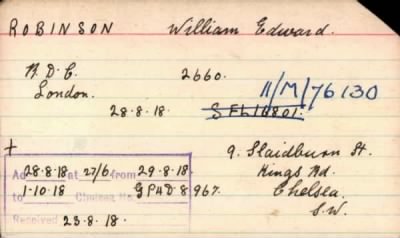 ROBINSON William Edward.
A.D.C. 2660. 11/M/76130
London.
28.8.18. SFL16801.
+ 9. Slaidburn St.
28.8.18 at 27/6 from 29.8.18. Kings Rd.
to 1.10.18 Chelsea No. GP4D 8967. Chelsea.
S.W.
Received 23.8.18.